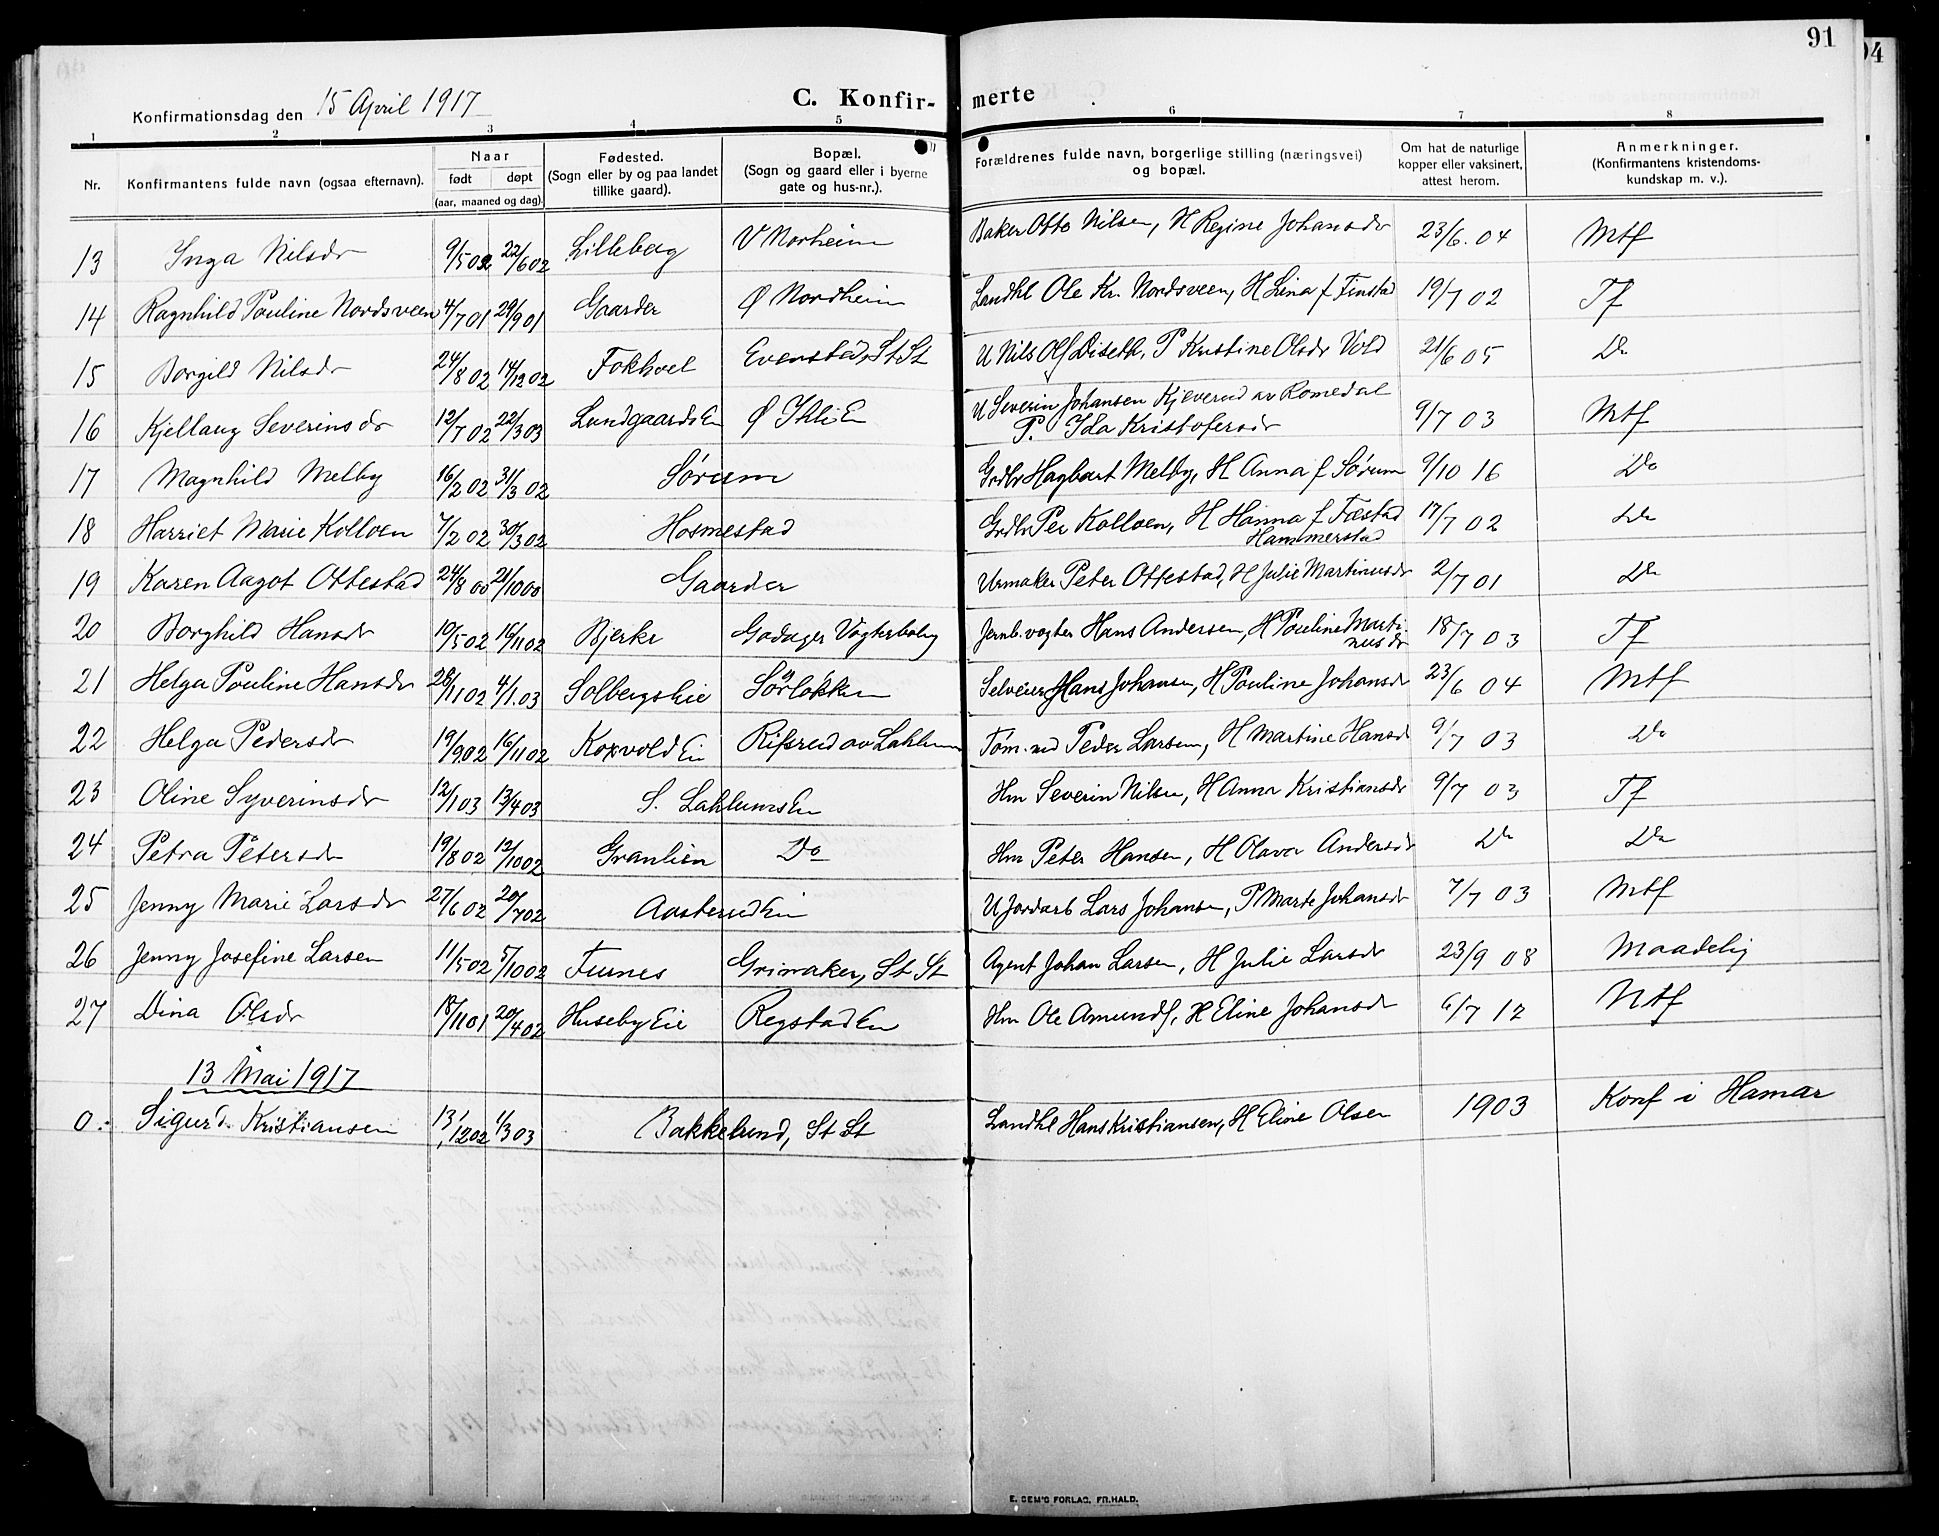 91
94
Konfirmationsdag den 15 April 1917
C. Konfir- merte
1 2 3 4 5 6 7 8
Nr. Konfirmantens fulde navn (ogsaa efternavn). Naar født døpt (aar, maaned og dag). Fødested. (Sogn eller by og paa landet tillike gaard). Bopæl. (Sogn og gaard eller i byerne gate og hus-nr.). Forældrenes fulde navn, borgerlige stilling (næringsvei) og bopæl. Om hat de naturlige kopper eller vaksinert, attest herom. Anmerkninger. (Konfirmantens kristendoms- kundskap m. v.).
13 Inga Nilsdr 9/5 02 22/6 02 Lilleberg V Norheim Baker Otto Nilsen, H Regine Johansdr 23/6. 04 Mtf
14 Ragnhild Pauline Nordsveen 4/7 01 29/9 01 Gaarder Ø Nordheim Landhl Ole Kr. Nordsveen, H Lina f Finstad 19/7 02 Tf
15 Borgild Nilsdr 24/8 02 14/12 02 Fokhol Evenstad, St St U Nils Olf Diseth, P Kristine Olsdr Vold 21/6 05 Do
16 Kjellaug Severinsdr 12/7 02 22/3 03 Lundgaards E Ø Ihli E U Severin Johansen Kjeverud av Romedal
P. Ida Kristofersdr 9/7 03 Mtf
17 Magnhild Melby 16/2 02 31/3 02 Sørum Grdbr Hagbart Melby, H Anna f Sørum 9/10 16 Do
18 Harriet Marie Kolloen 7/2 02 30/3 02 Hosmestad Grdbr Per Kolloen, H Hanna f Fæstad
Hammerstad 17/7 02 Do
19 Karen Aagot Ottestad 24/8 00 21/10 00 Gaarder Urmaker Peter Ottestad, H Julie Martinusdr 2/7 01 Do
20 Borghild Hansdr 19/5 02 16/11 02 Bjerke Godager Vogterbolig Jernb.vogter Hans Andersen, H Pauline Marti-
nusdr 18/7 03 Tf
21 Helga Pouline Hansdr 28/11 02 4/1. 03 Solbergshie Sørløkken Selveier Hans Johansen, H Pouline Johansdr 23/6 04 Mtf
22 Helga Pedersdr 19/9 02 16/11 02 Koxvold Ei Rifsrud av Lahlum Tøm.md Peder Larsen, H Martine Hansd 9/7 03 Do
23 Oline Syverinsdr 12/1 03 13/4 03 S. Lahlums En Hm Severin Nilsen, H Anna Kristiansdr 9/7 03 Tf
24 Petra Petersdr 19/8 02 12/10 02 Granlien Do Hm Peter Hansen, H Olava Andersdr Do Do
25 Jenny Marie Larsdr 27/6 02 20/7 02 Aasterud Ein U Jordarb Lars Johansen, P Marte Johansdr 7/7 03 Mtf
26 Jenny Josefine Larsen 11/5 02 5/10 02 Furnes Grimaker, St St Agent Johan Larsen, H Julie Larsdr 23/9 08 Maadelig
27 Dina Olsdr 18/11 01 20/4 02 Huseby Eie Regstad En Hm Ole Amundf, H Eline Johansdr 6/7 12 Ntf
13 Mai 1917
0. Sigurd Kristiansen 13/12 02 1/3 03 Bakkelund, St St Landhl Hans Kristiansen, H Eline Olsen 1903 Konf i Hamar
E. SEM'S FORLAG, FR.HALD.